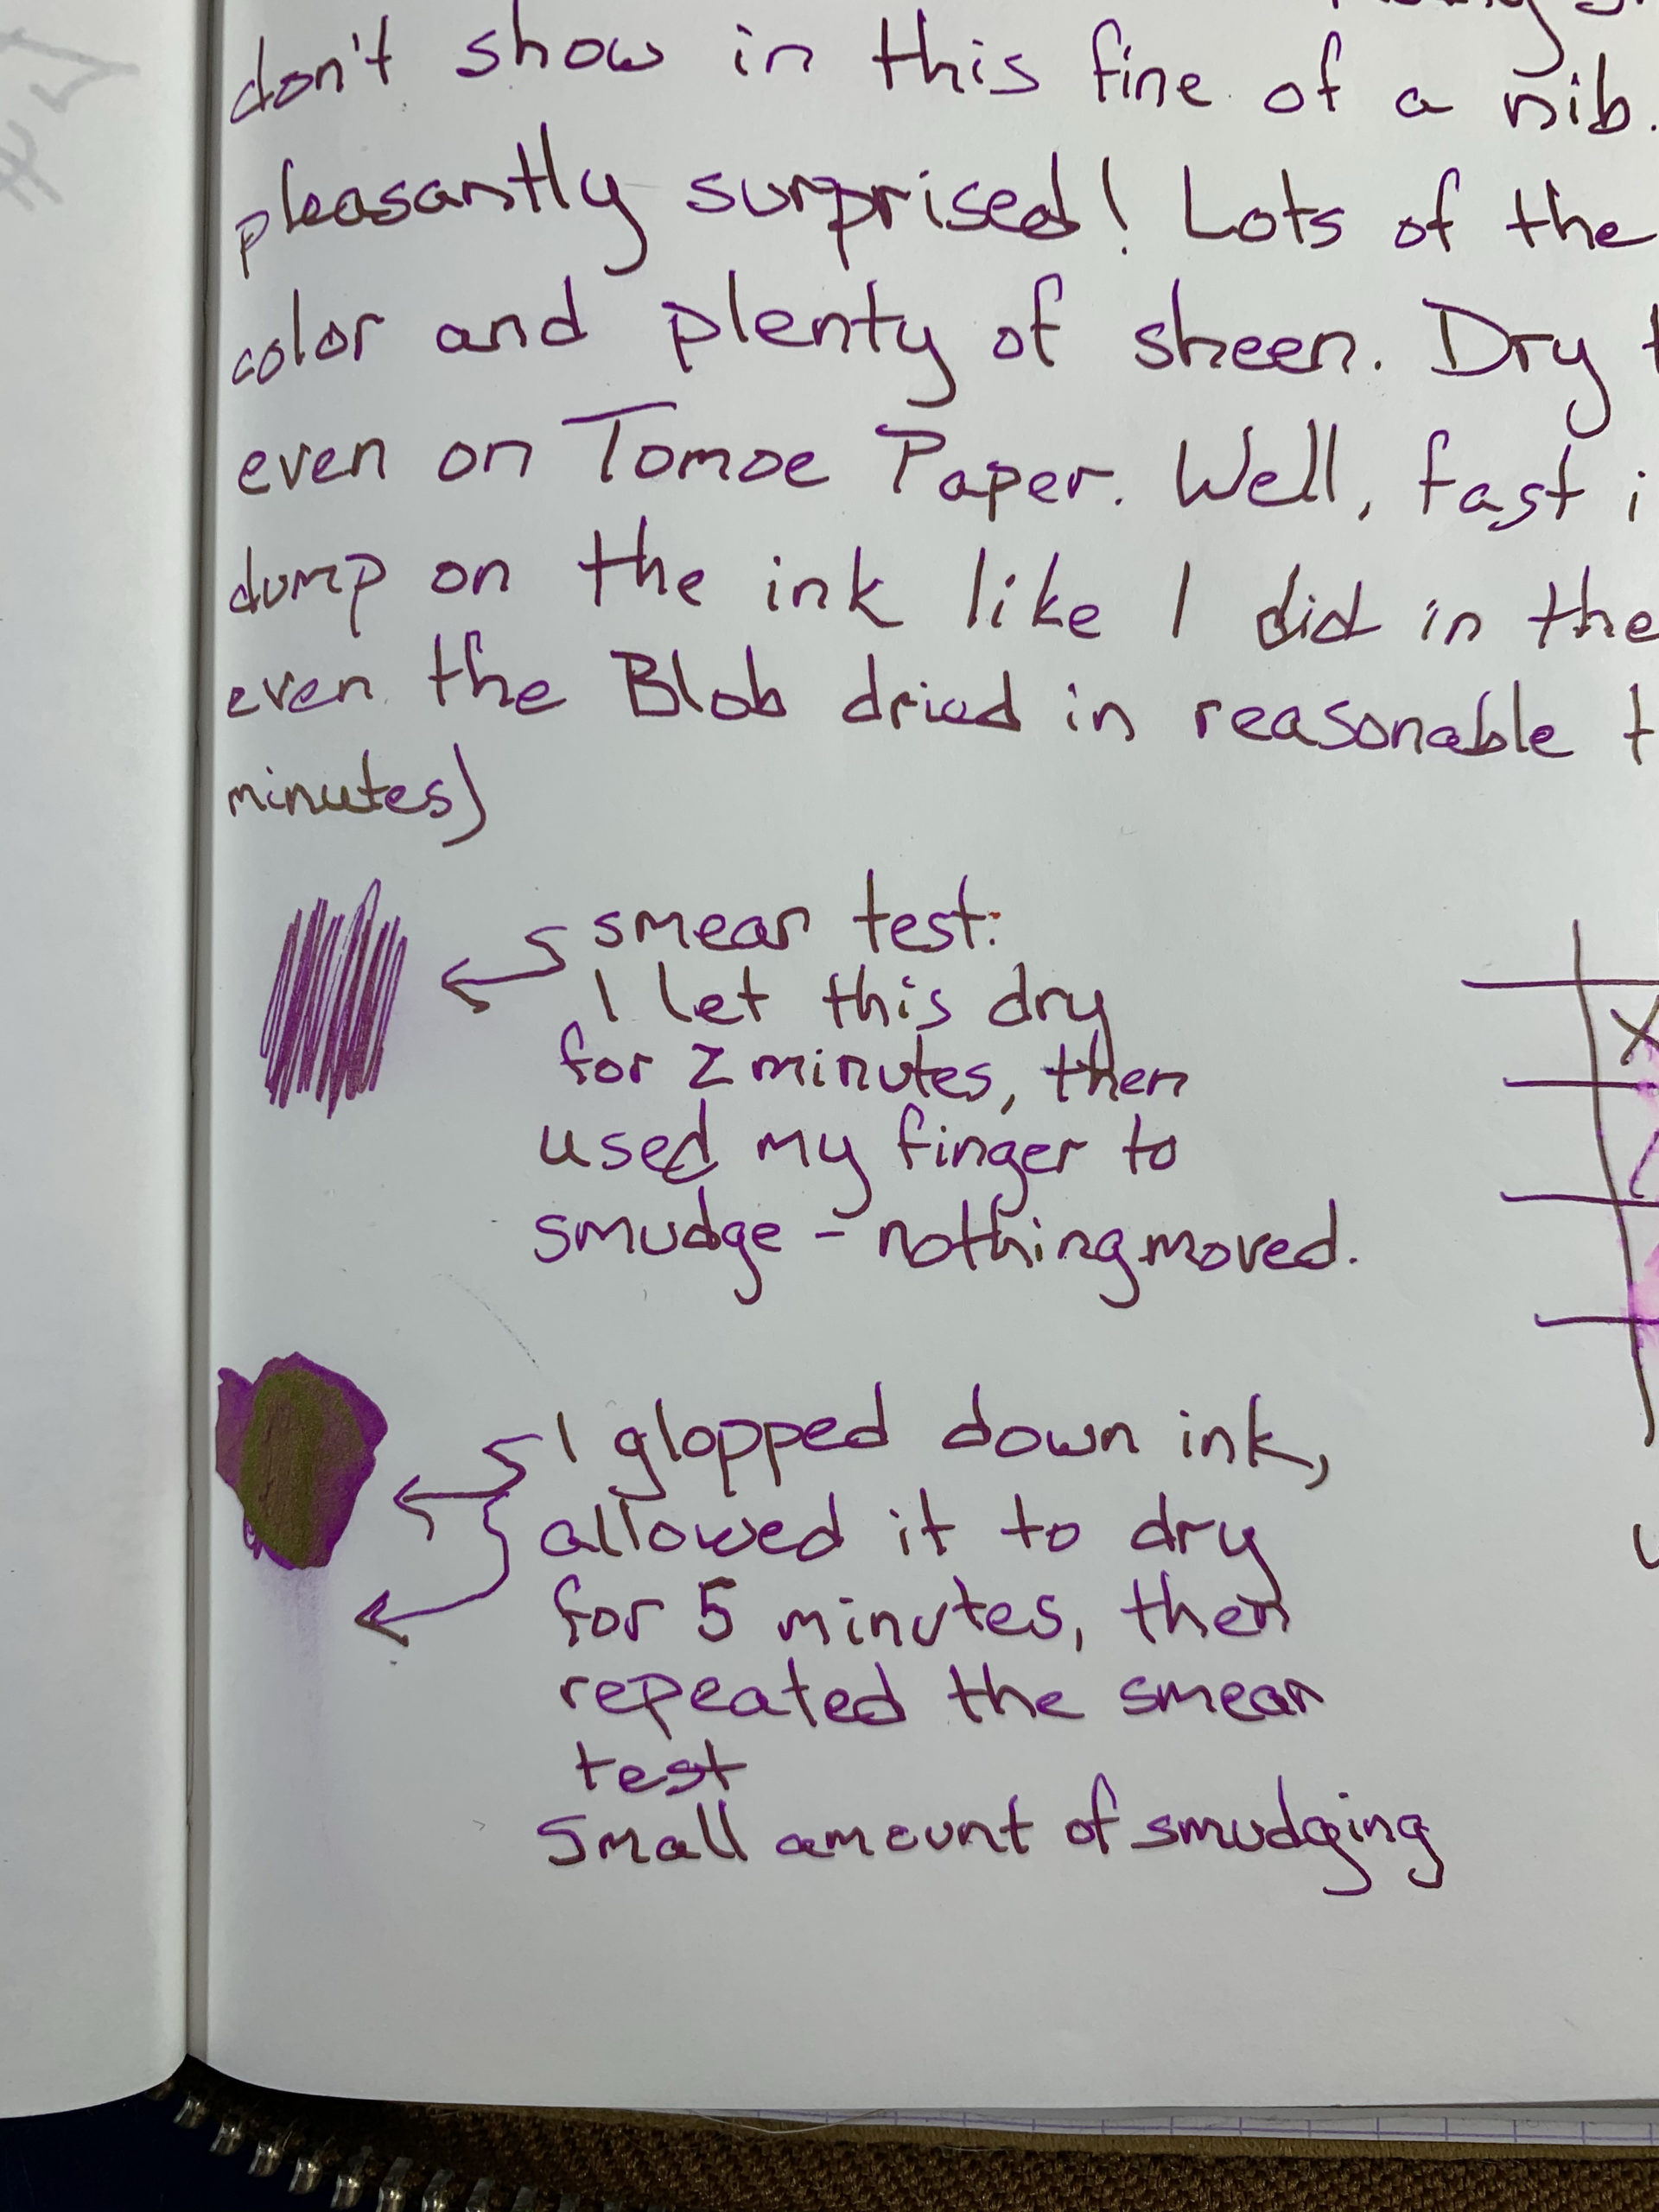 don't show in this fine of a nib.
pleasantly surprised! Lots of the
color and plenty of sheen. Dry
even on Tomoe Paper. Well, fast
dump on the ink like I did in the
even the Blob dried in reasonable
minutes)
smear test:
I let this dry
for 2 minutes, then
used my finger to
smudge - nothing moved.
I glopped down ink,
allowed it to dry
for 5 minutes, then
repeated the smear
test
Small amount of smudging